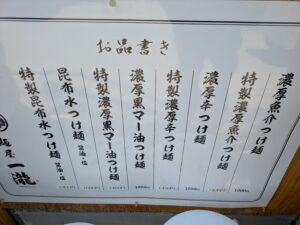 お品書き
濃厚魚介つけ麺
特製濃厚魚介つけ麺
濃厚辛つけ麺
特製濃厚辛つけ麺
濃厚黒マー油つけ麺
特製濃厚黒マー油つけ麺
昆布水つけ麺 醤油・塩
特製昆布水つけ麺 醤油・塩
麺屋 一瀧